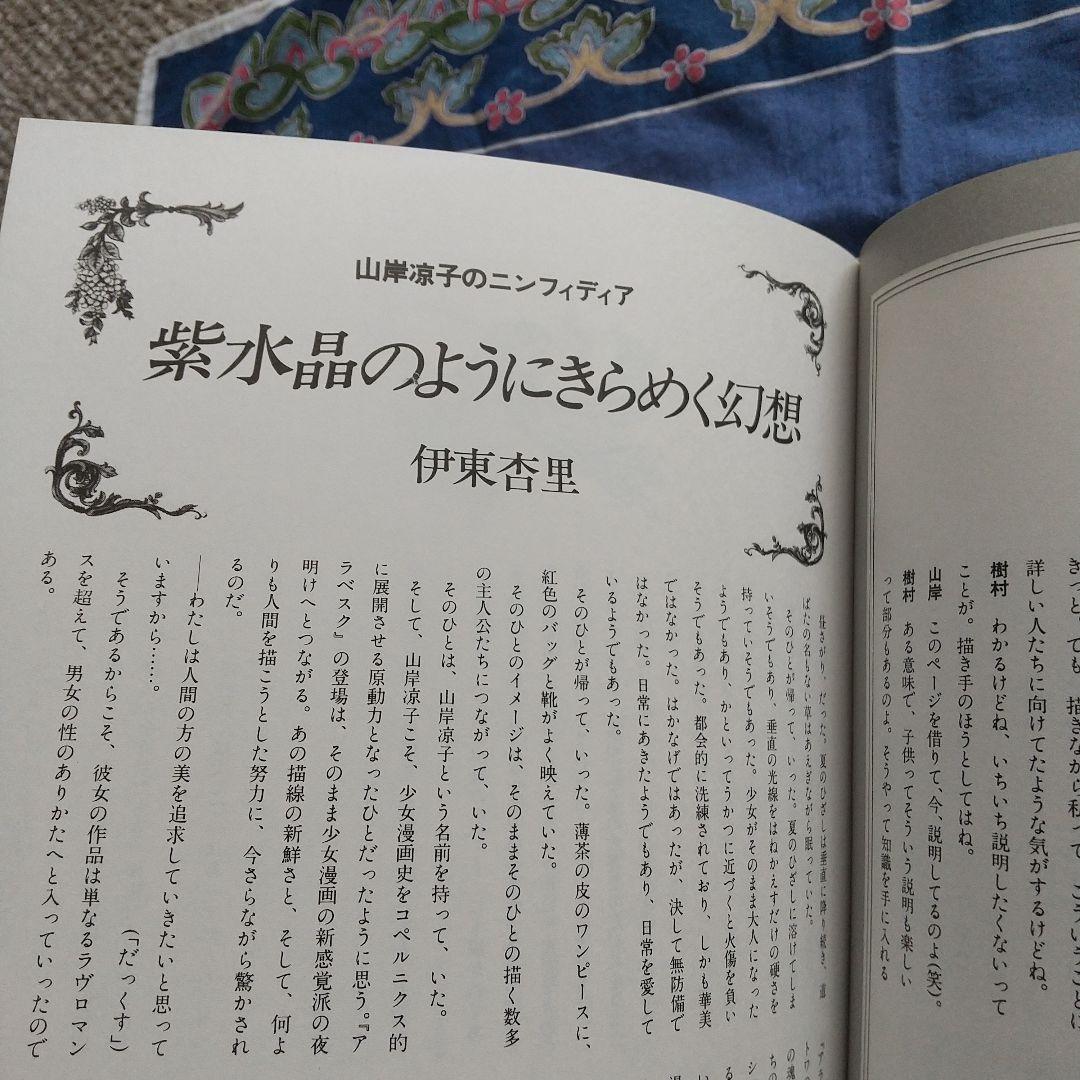 山岸凉子のニンフィディア
紫水晶のようにきらめく幻想
伊東杏里
昼さがり、だった。夏のひざしは垂直に降り続き、道
ばたの名もない草はあえぎながら眠っていた。
そのひとが帰って、いった。夏のひざしに溶けてしま
いそうでもあり、垂直の光線をはねかえすだけの硬さを
持っていそうでもあった。少女がそのまま大人になった
ようでもあり、かといってうかつに近づくと火傷を負い
そうでもあった。都会的に洗練されており、しかも華美
ではなかった。はかなげではあったが、決して無防備で
はなかった。日常にあきたようでもあり、日常を愛して
いるようでもあった。
そのひとが帰って、いった。薄茶の皮のワンピースに、
紅色のバッグと靴がよく映えていた。
そのひとのイメージは、そのままそのひとの描く数多
の主人公たちにつながって、いた。
そのひとは、山岸凉子という名前を持って、いた。
そして、山岸凉子こそ、少女漫画史をコペルニクス的
に展開させる原動力となったひとだったように思う。『ア
ラベスク』の登場は、そのまま少女漫画の新感覚派の夜
明けへとつながる。あの描線の新鮮さと、そして、何よ
りも人間を描こうとした努力に、今さらながら驚かされ
るのだ。
――わたしは人間の方の美を追求していきたいと思って
いますから……。
(「だっくす」)
そうであるからこそ、彼女の作品は単なるラヴロマン
スを超えて、男女の性のありかたへと入っていったので
ある。
詳しい人たちに向けてたような気がするけどね。
樹村 わかるけどね、いちいち説明したくないって
ことが。描き手のほうとしてはね。
山岸 このページを借りて、今、説明してるのよ(笑)。
樹村 ある意味で、子供ってそういう説明も楽しい
って部分もあるのよ。そうやって知識を手に入れる